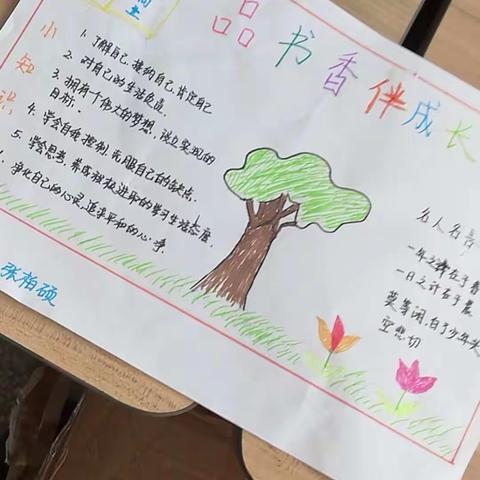 品书香伴成长
小知识
1. 了解自己、接纳自己、肯定自己
2. 对自己的生活负责.
3. 拥有个伟大的梦想. 设立实现的
目标.
4. 学会自我控制. 克服自己的缺点.
5. 学会思考. 养成积极进取的学习生活态度.
净化自己的心灵, 追求平和的心
张柏硕
名人名
一年之计在于春
一日之计在于晨
莫等闲, 白了少年头
空悲切